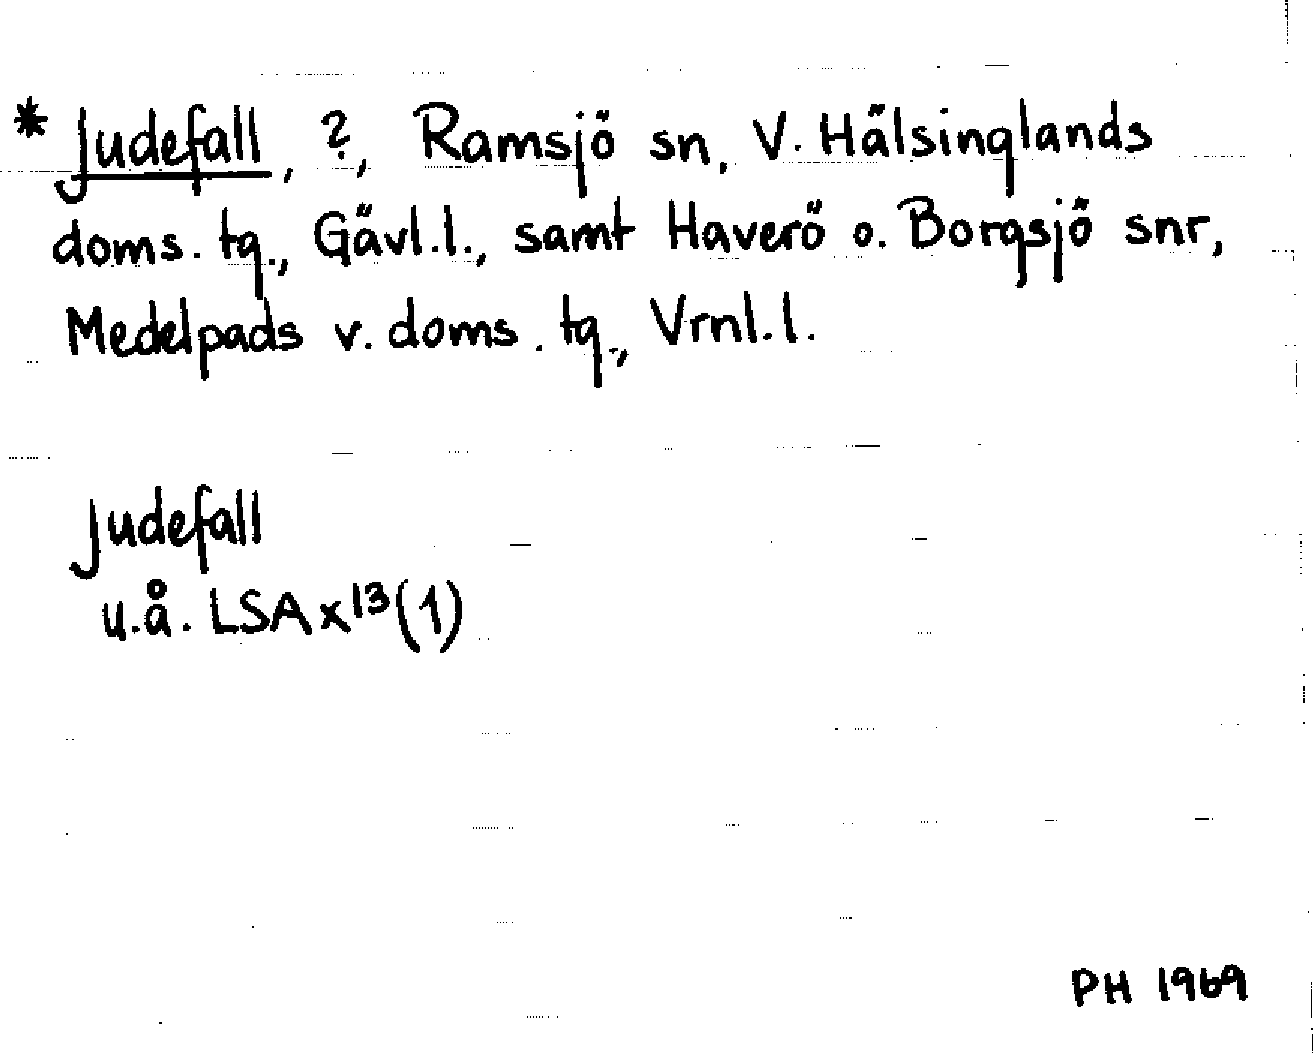 * Judefall, ?, Ramsjö sn, V. Hälsinglands
doms. tg., Gävl.l., samt Haverö o. Borgsjö snr,
Medelpads v. doms. tg., Vrnl.l.
Judefall
u.å. LSA x13(1)
PH 1969